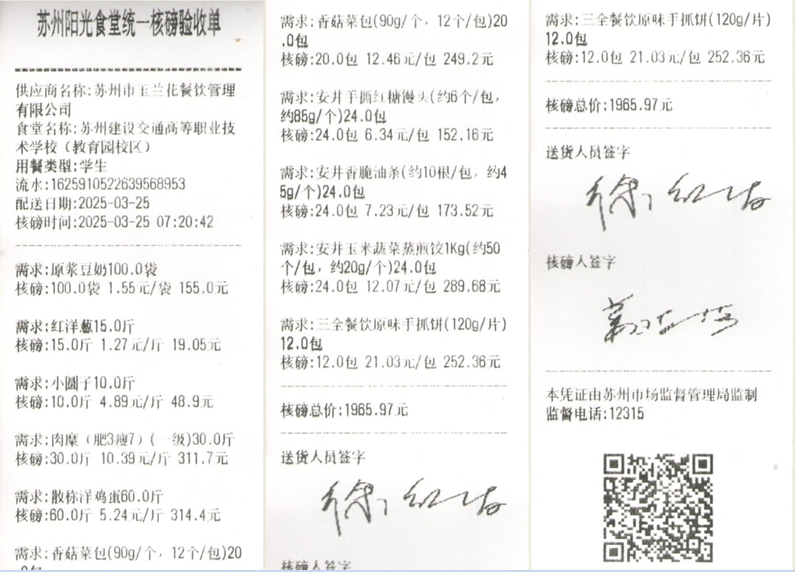 苏州阳光食堂统一核磅验收单
供应商名称:苏州市玉兰花餐饮管理
有限公司
食堂名称:苏州建设交通高等职业技
术学校(教育园校区)
用餐类型:学生
流水:1625910522639568953
配送日期:2025-03-25
核磅时间:2025-03-25 07:20:42
需求:原浆豆奶100.0袋
核磅:100.0袋 1.55元/袋 155.0元
需求:红洋葱15.0斤
核磅:15.0斤 1.27元/斤 19.05元
需求:小圆子10.0斤
核磅:10.0斤 4.89元/斤 48.9元
需求:肉糜(肥3瘦7)(一级)30.0斤
核磅:30.0斤 10.39元/斤 311.7元
需求:散称洋鸡蛋60.0斤
核磅:60.0斤 5.24元/斤 314.4元
需求:香菇菜包(90g/个,12个/包)20
.0包
需求:香菇菜包(90g/个,12个/包)20
.0包
核磅:20.0包 12.46元/包 249.2元
需求:安井手撕红糖馒头(约6个/包,
约85g/个)24.0包
核磅:24.0包 6.34元/包 152.16元
需求:安井香脆油条(约10根/包,约4
5g/个)24.0包
核磅:24.0包 7.23元/包 173.52元
需求:安井玉米蔬菜蒸煎饺1Kg(约50
个/包,约20g/个)24.0包
核磅:24.0包 12.07元/包 289.68元
需求:三全餐饮原味手抓饼(120g/片)
12.0包
核磅:12.0包 21.03元/包 252.36元
核磅总价:1965.97元
送货人员签字
核磅人签字
需求:三全餐饮原味手抓饼(120g/片)
12.0包
核磅:12.0包 21.03元/包 252.36元
核磅总价:1965.97元
送货人员签字
核磅人签字
本凭证由苏州市场监督管理局监制
监督电话:12315